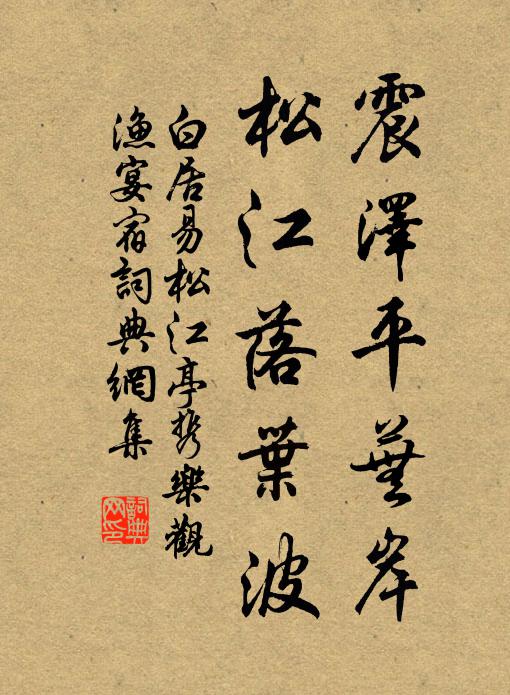 震澤平蕪岸
松江落葉波
白居易松江亭携樂觀
漁宴宿詞典網集
詞典
网印